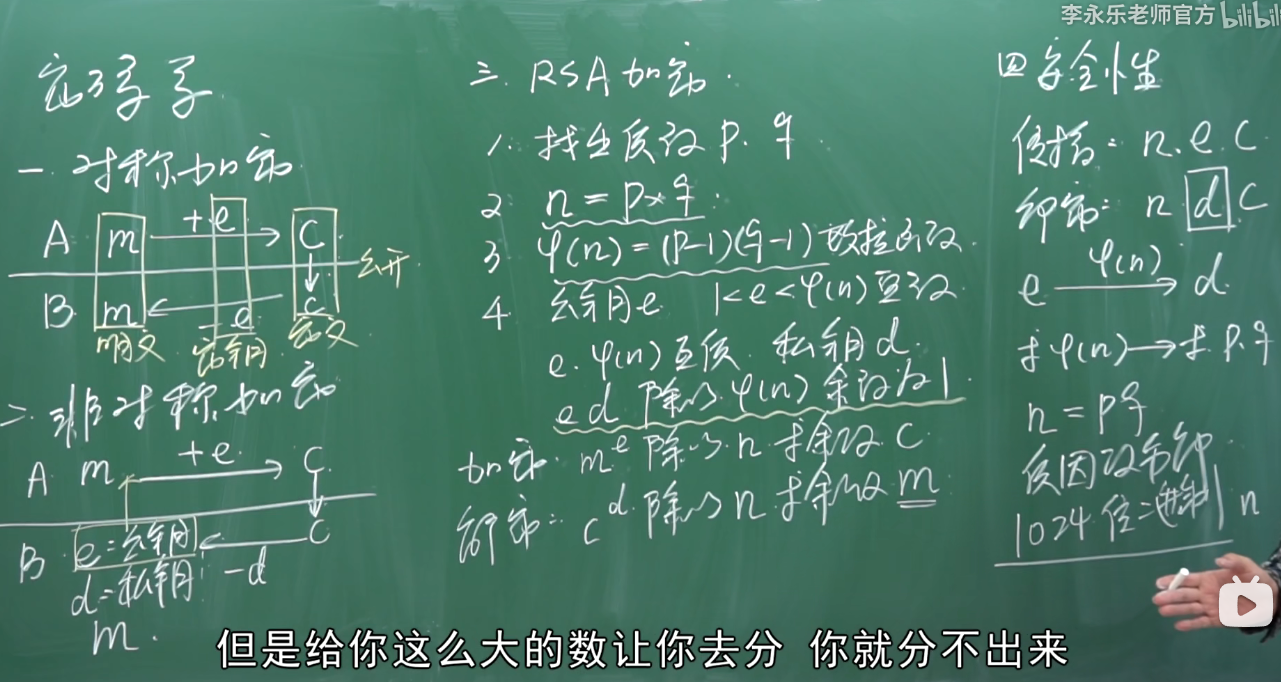 李永乐老师官方 bilibili
密码学
一. 对称加密
A m +e C
公开
B m -e C
明文 密钥 密文
二. 非对称加密
A m +e C
B e=公钥 C
d=私钥 -d
m.
三. RSA加密.
1. 找出质数 p. q
2 n=p×q
3 φ(n)=(p-1)(q-1) 欧拉函数.
4 公钥e 1<e<φ(n) 整数
e. φ(n)互质. 私钥d.
ed 除以φ(n)余数为1
加密. m^e 除以n 求余数 C
解密: c^d 除以n 求余数 m
四 安全性
传播: n.e.C
解密: n d C
e φ(n) d
求φ(n)→求.p.q
n=pq
质因数分解
1024位二进制 n
但是给你这么大的数让你去分 你就分不出来